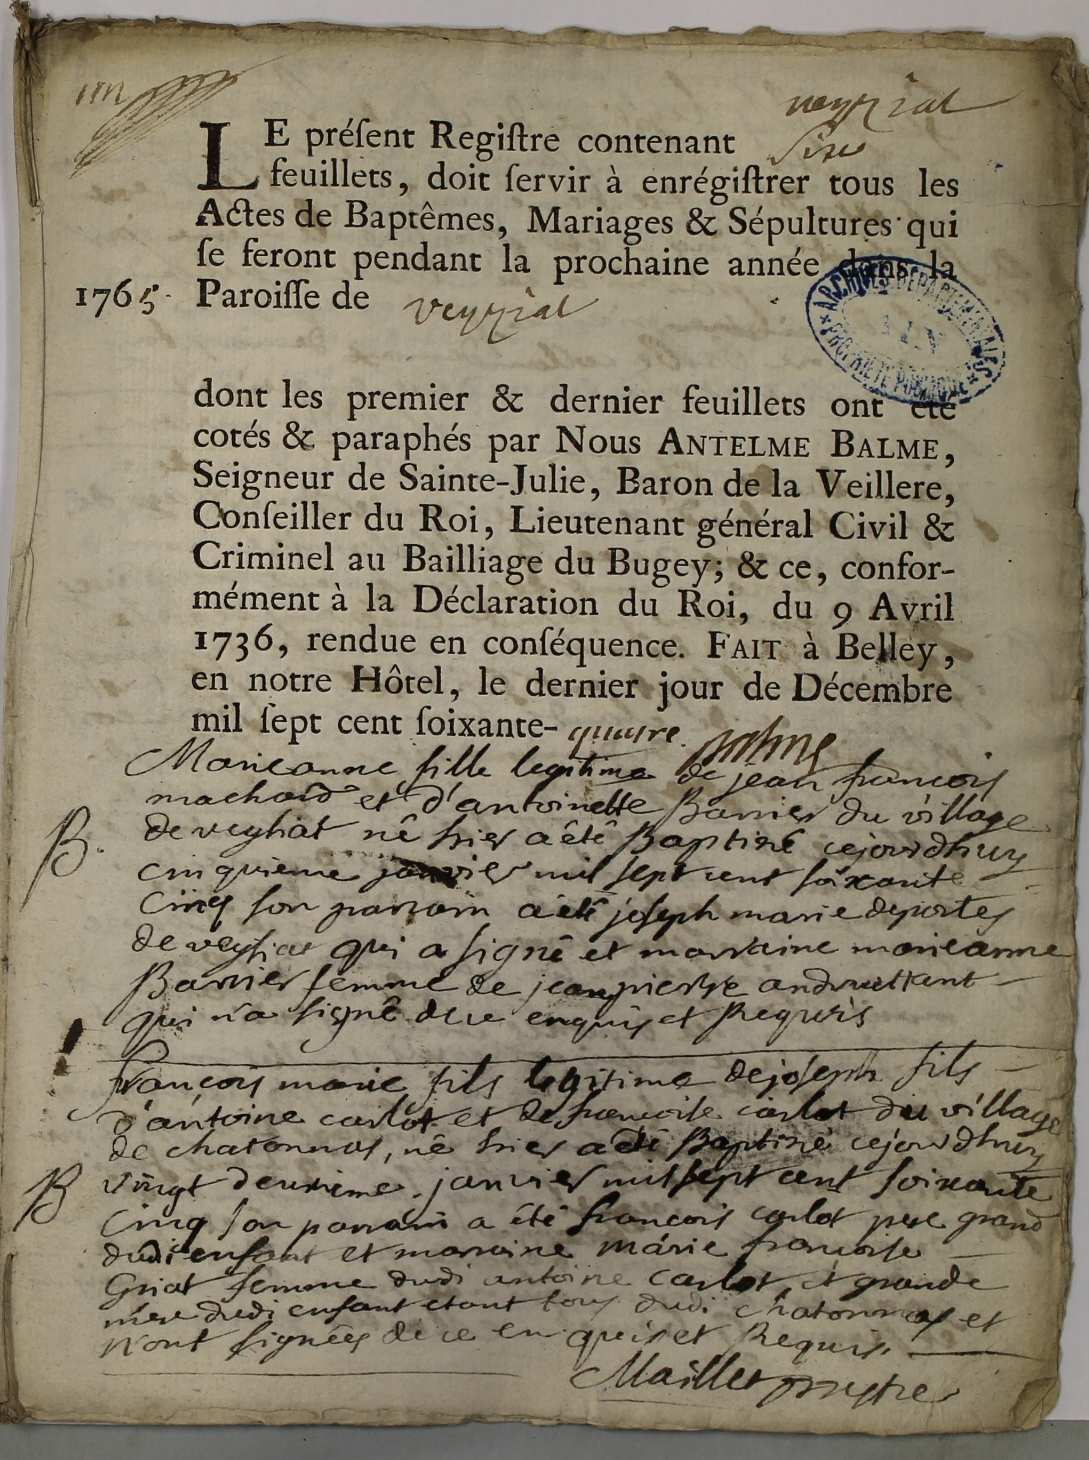 veyziat
LE préſent Regiſtre contenant Six
feuillets, doit ſervir à enrégiſtrer tous les
Actes de Baptêmes, Mariages & Sépultures qui
ſe feront pendant la prochaine année dans la
1765. Paroiſſe de veyziat
ARCHIVES DÉPARTEMENTALES
AIN
PROPRIÉTÉ PUBLIQUE
dont les premier & dernier feuillets ont été
cotés & paraphés par Nous ANTELME BALME,
Seigneur de Sainte-Julie, Baron de la Veillere,
Conſeiller du Roi, Lieutenant général Civil &
Criminel au Bailliage du Bugey; & ce, confor-
mément à la Déclaration du Roi, du 9 Avril
1736, rendue en conſéquence. FAIT à Belley,
en notre Hôtel, le dernier jour de Décembre
mil ſept cent ſoixante- quatre. Balme
Marieanne fille legitime de jean françois
machard et d'antoinette Barrier du village
B. de veyziat né hier a été Baptizé cejourdhuy
cinquieme janvier mil sept cent soixante
Cinq son parrain a été joseph marie deportes
de veyziat qui a signé et marraine marieanne
Barrier femme de jean pierre andruettant
qui n'a signé de ce enquis et Requis
françois marie fils legitime de joseph fils
d'antoine carlot et de francoise carlot du village
de chatonnas, né hier a été Baptizé cejourdhuy
B vingt deuxieme janvier mil sept cent soixante
Cinq son parrain a été françois carlot pere grand
dudi enfant et marraine marie francoise
Griat femme dudi antoine Carlot, et grande
mere dudi enfant etant tous dudi chatonnas et
N'ont signées de ce en quis et Requis.
Maillet prestre